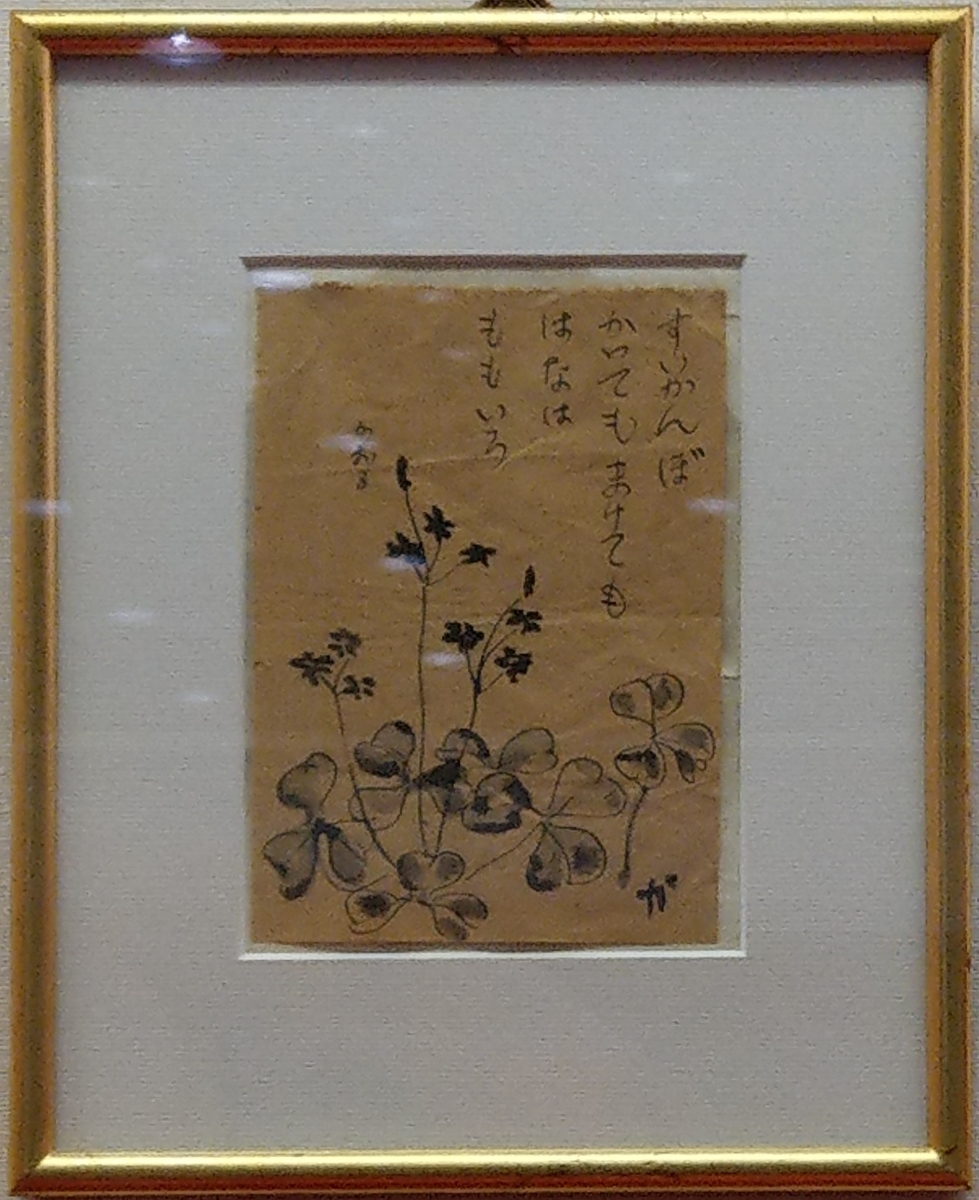 すいかんぼ
かっても まけても
はなは
ももいろ
が